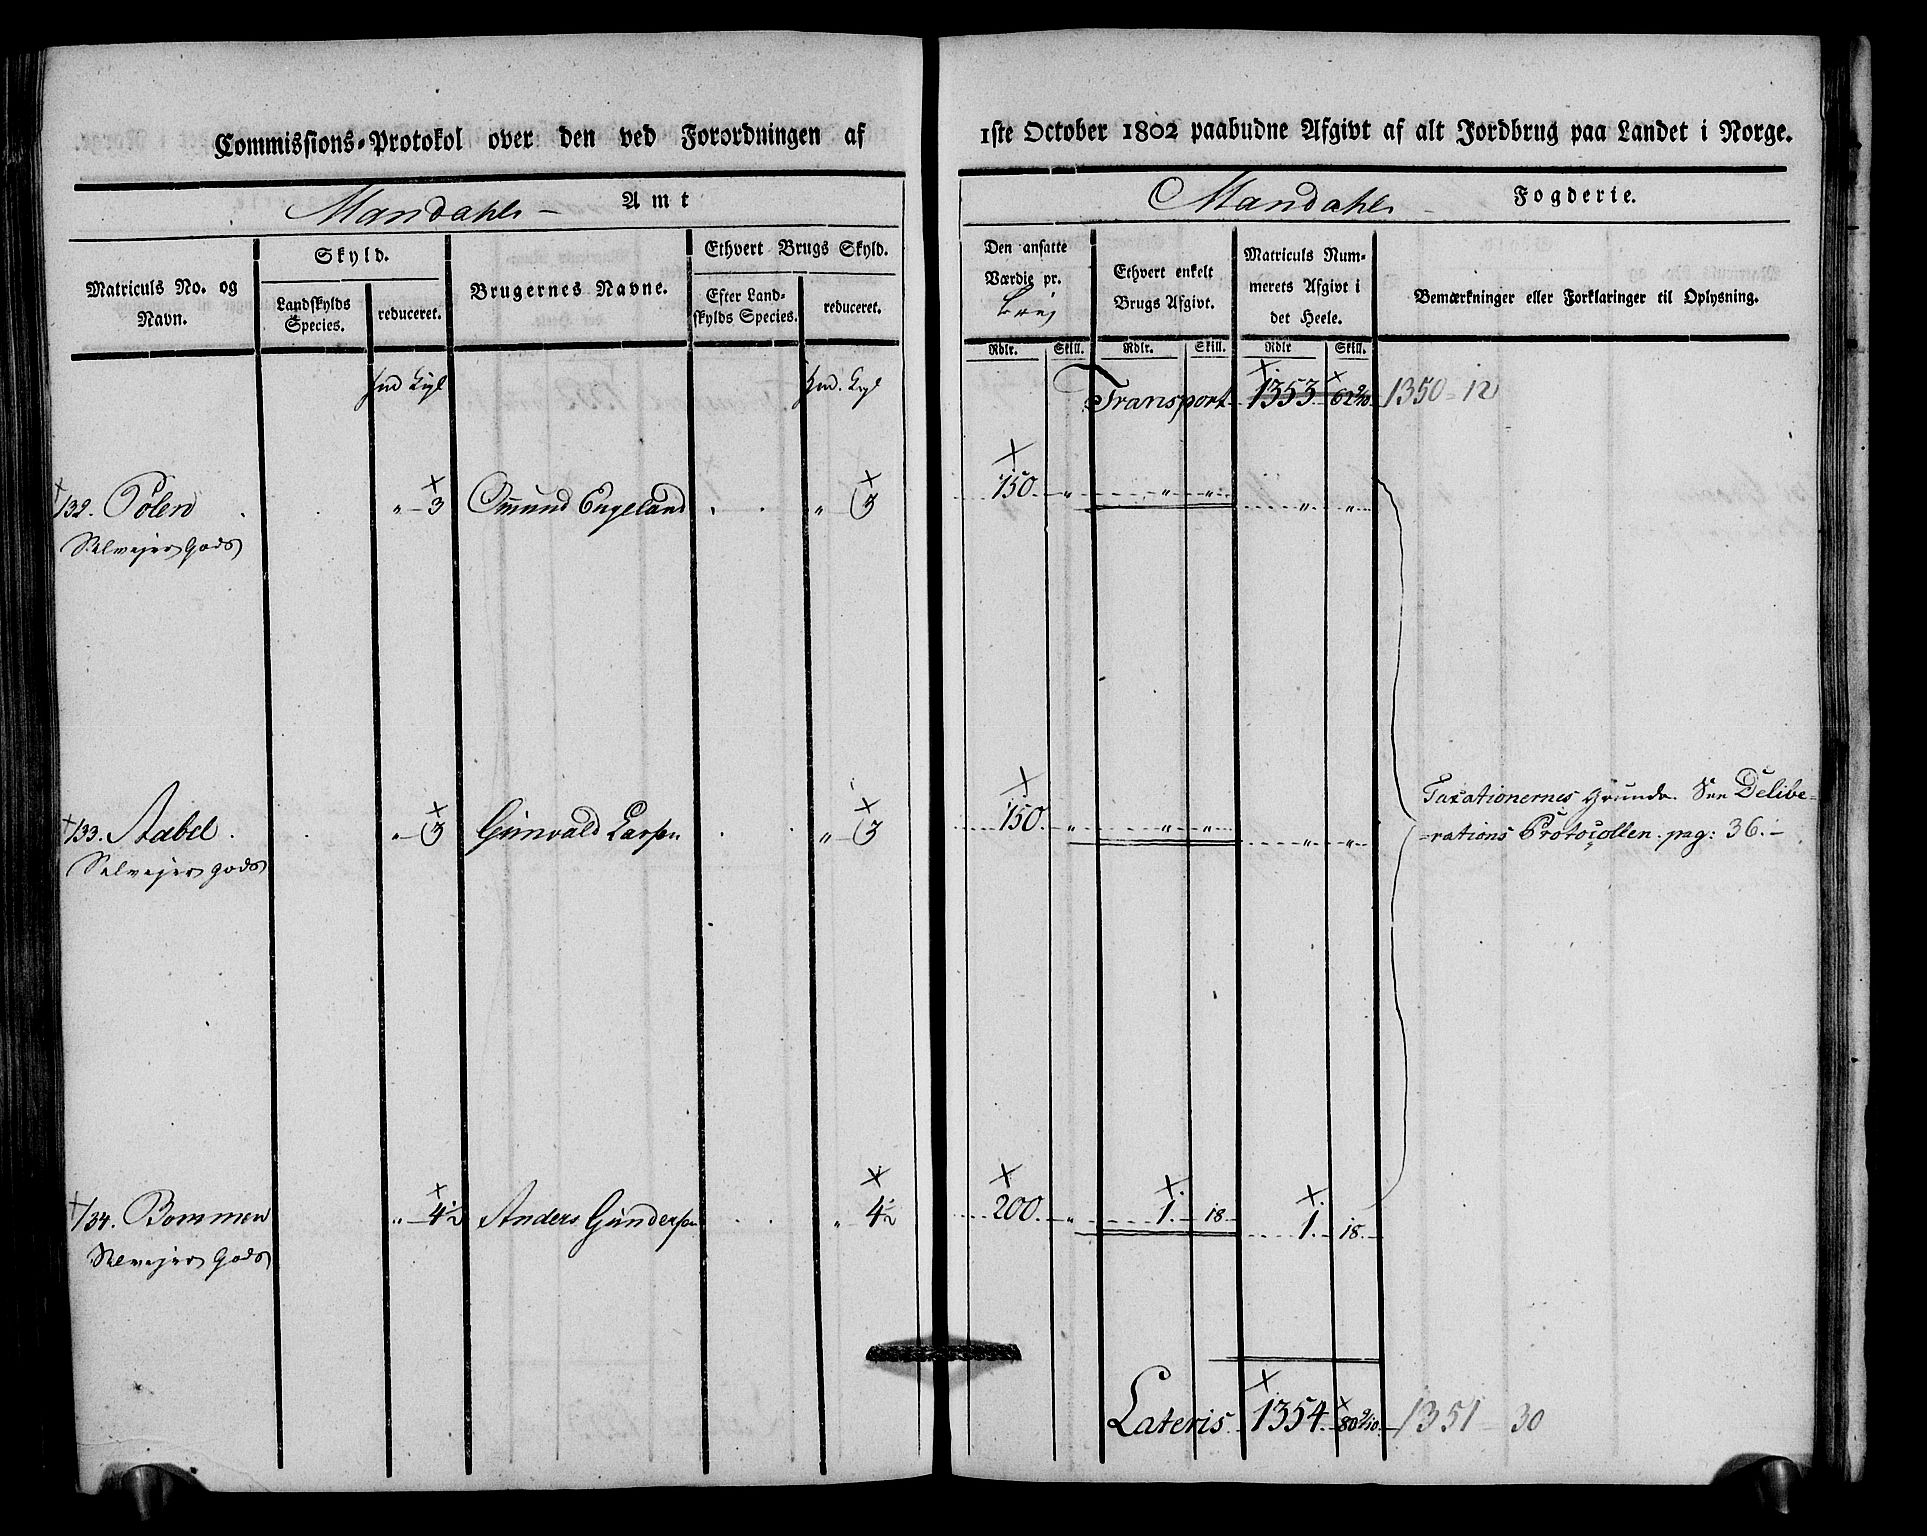 Commissions-Protokol over den ved Forordningen af
Mandahls Amt
Matriculs No. og Navn.
Skyld.
Landskylds Species.
reduceret.
Brugernes Navne.
Ethvert Brugs Skyld.
Efter Landskylds Species.
reduceret.
132. Pølen " 3 Omund Engeland " 3
Selvejer Gods
133. Aabel " 3 Gunvald Larsen " 3
Selvejer Gods
134. Bommen " 4½ Anders Gundersen " 4½
Selvejer Gods
1ste October 1802 paabudne Afgivt af alt Jordbrug paa Landet i Norge.
Mandahls Fogderie.
Den ansatte Værdie pr.
Ethvert enkelt Brugs Afgivt.
Matriculs Nummerets Afgivt i det Heele.
Bemærkninger eller Forklaringer til Oplysning.
Rdlr. Skill. Rdlr. Skill. Rdlr Skill.
Transport 1353 1350 = 12
150 " " " " "
150 " " " " "
Taxationernes Grunde. See Delibe-
rations Protocollen pag: 36.
200 " 1 18 1 18
Lateris 1354 1351 = 30